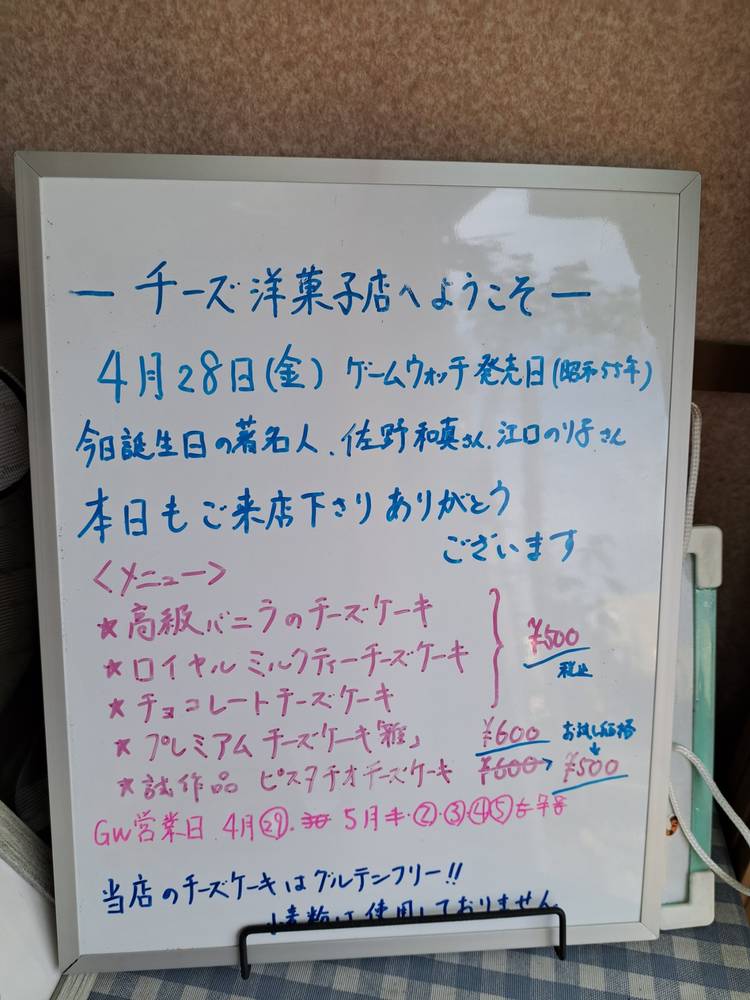 ー チーズ洋菓子店へようこそ ー
4月28日(金) ゲームウォッチ発売日(昭和55年)
今日誕生日の著名人、佐野和真さん、江口のり子さん
本日もご来店下さりありがとう
ございます
<メニュー>
★高級バニラのチーズケーキ
★ロイヤルミルクティーチーズケーキ
¥500
税込
★チョコレートチーズケーキ
★プレミアムチーズケーキ「雅」 ¥600 お試し価格
★試作品 ピスタチオチーズケーキ ¥600 → ¥500
GW営業日 4月㉙・30 5月1・②・③・④⑤
当店のチーズケーキはグルテンフリー!!
小麦粉は使用しておりません